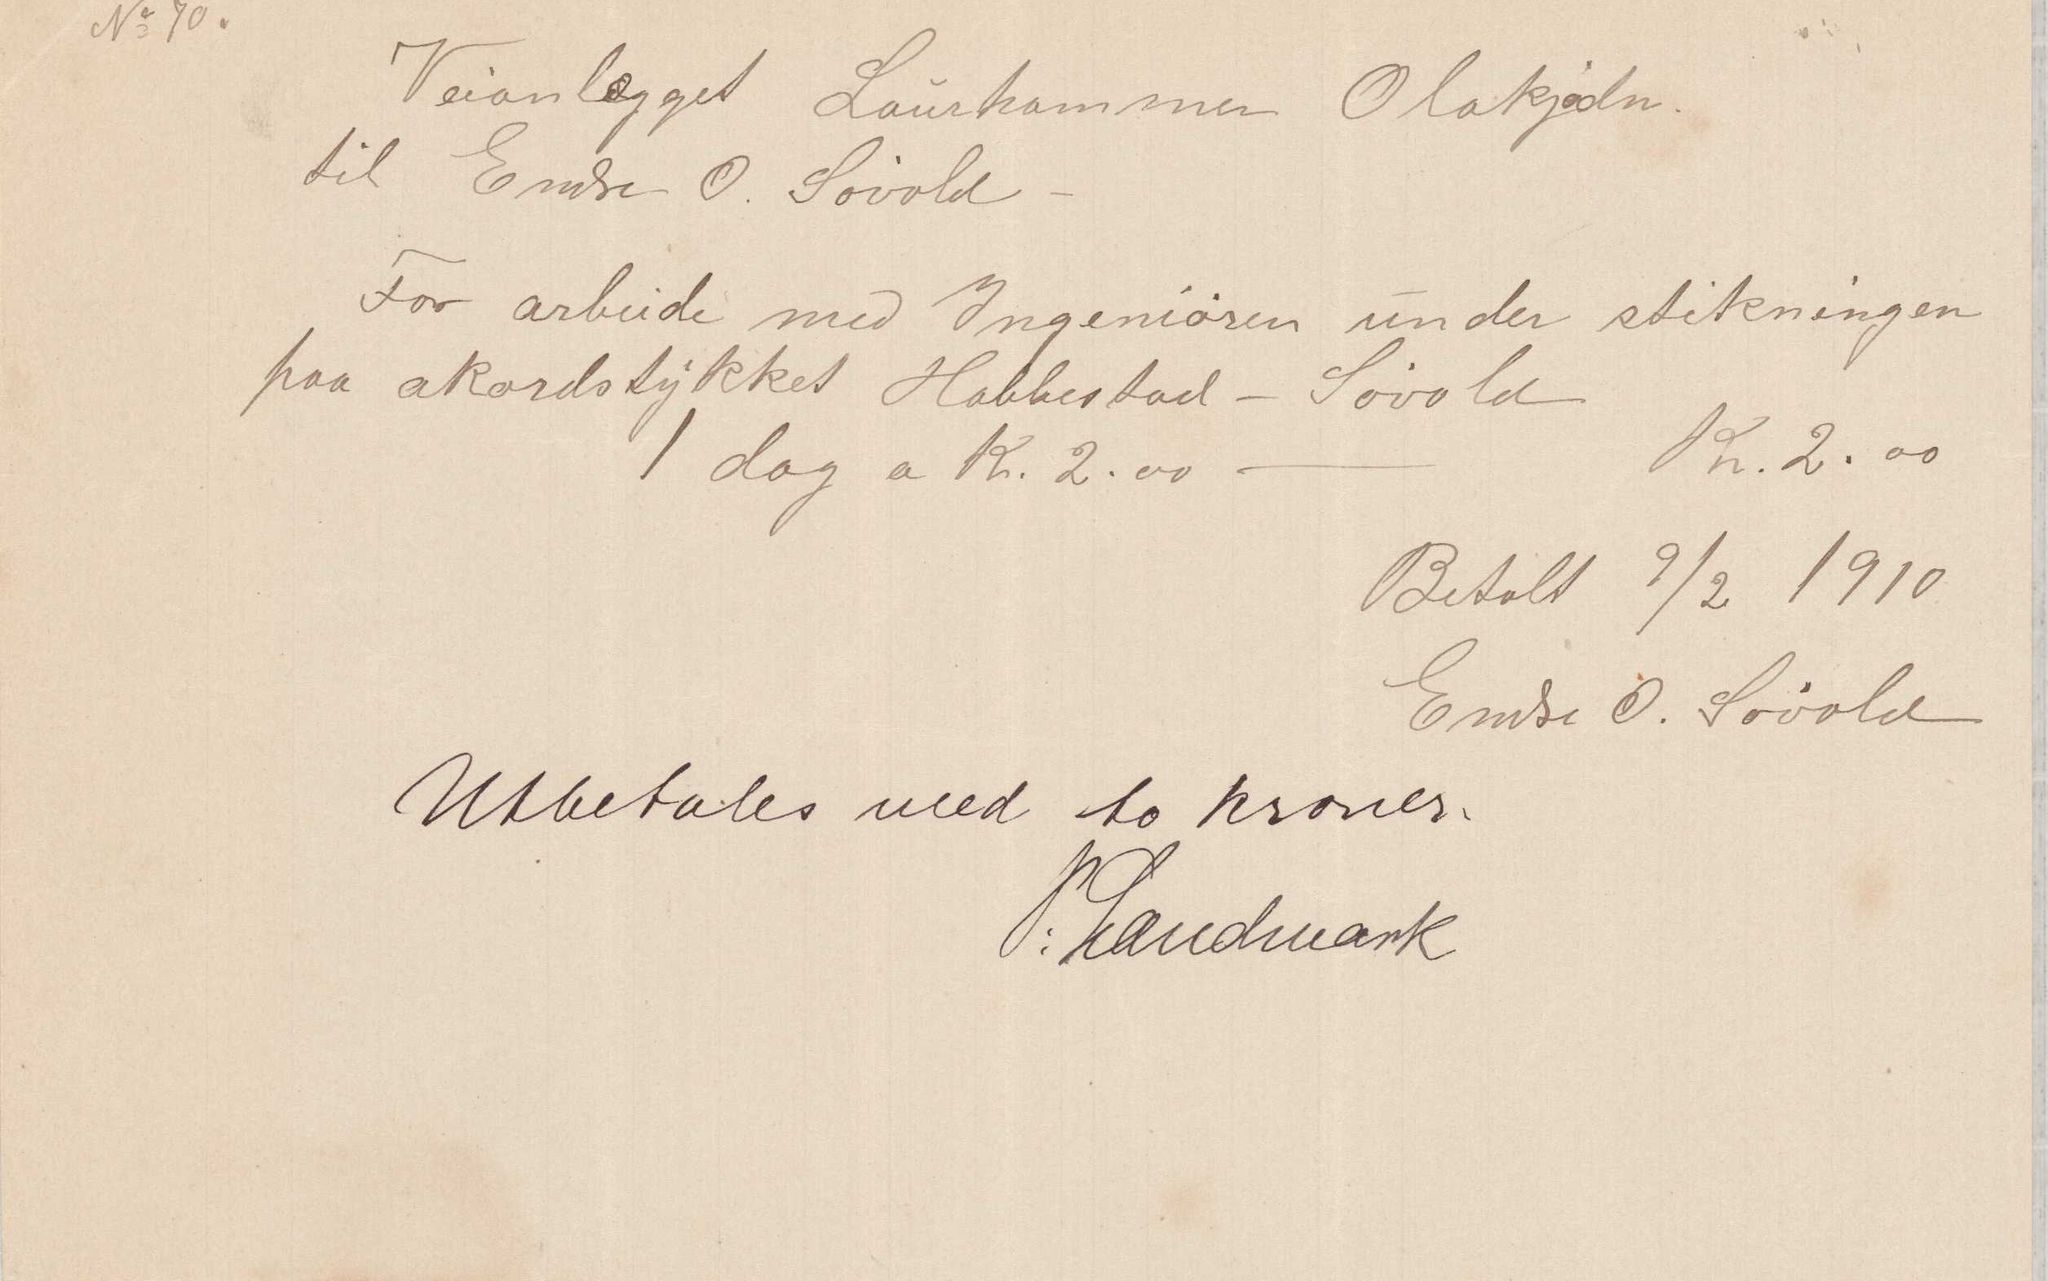 No 70.
Veianlægget Laurhammer Olakjødn.
til Endre O. Søvold –
For arbeide med Ingeniøren under stikningen
paa akordstykket Habbestad – Søvold
1 dag a Kr. 2.00 — Kr. 2.00
Betalt 9/2 1910
Endre O. Søvold
Utbetales med to kroner.
P. Landmark